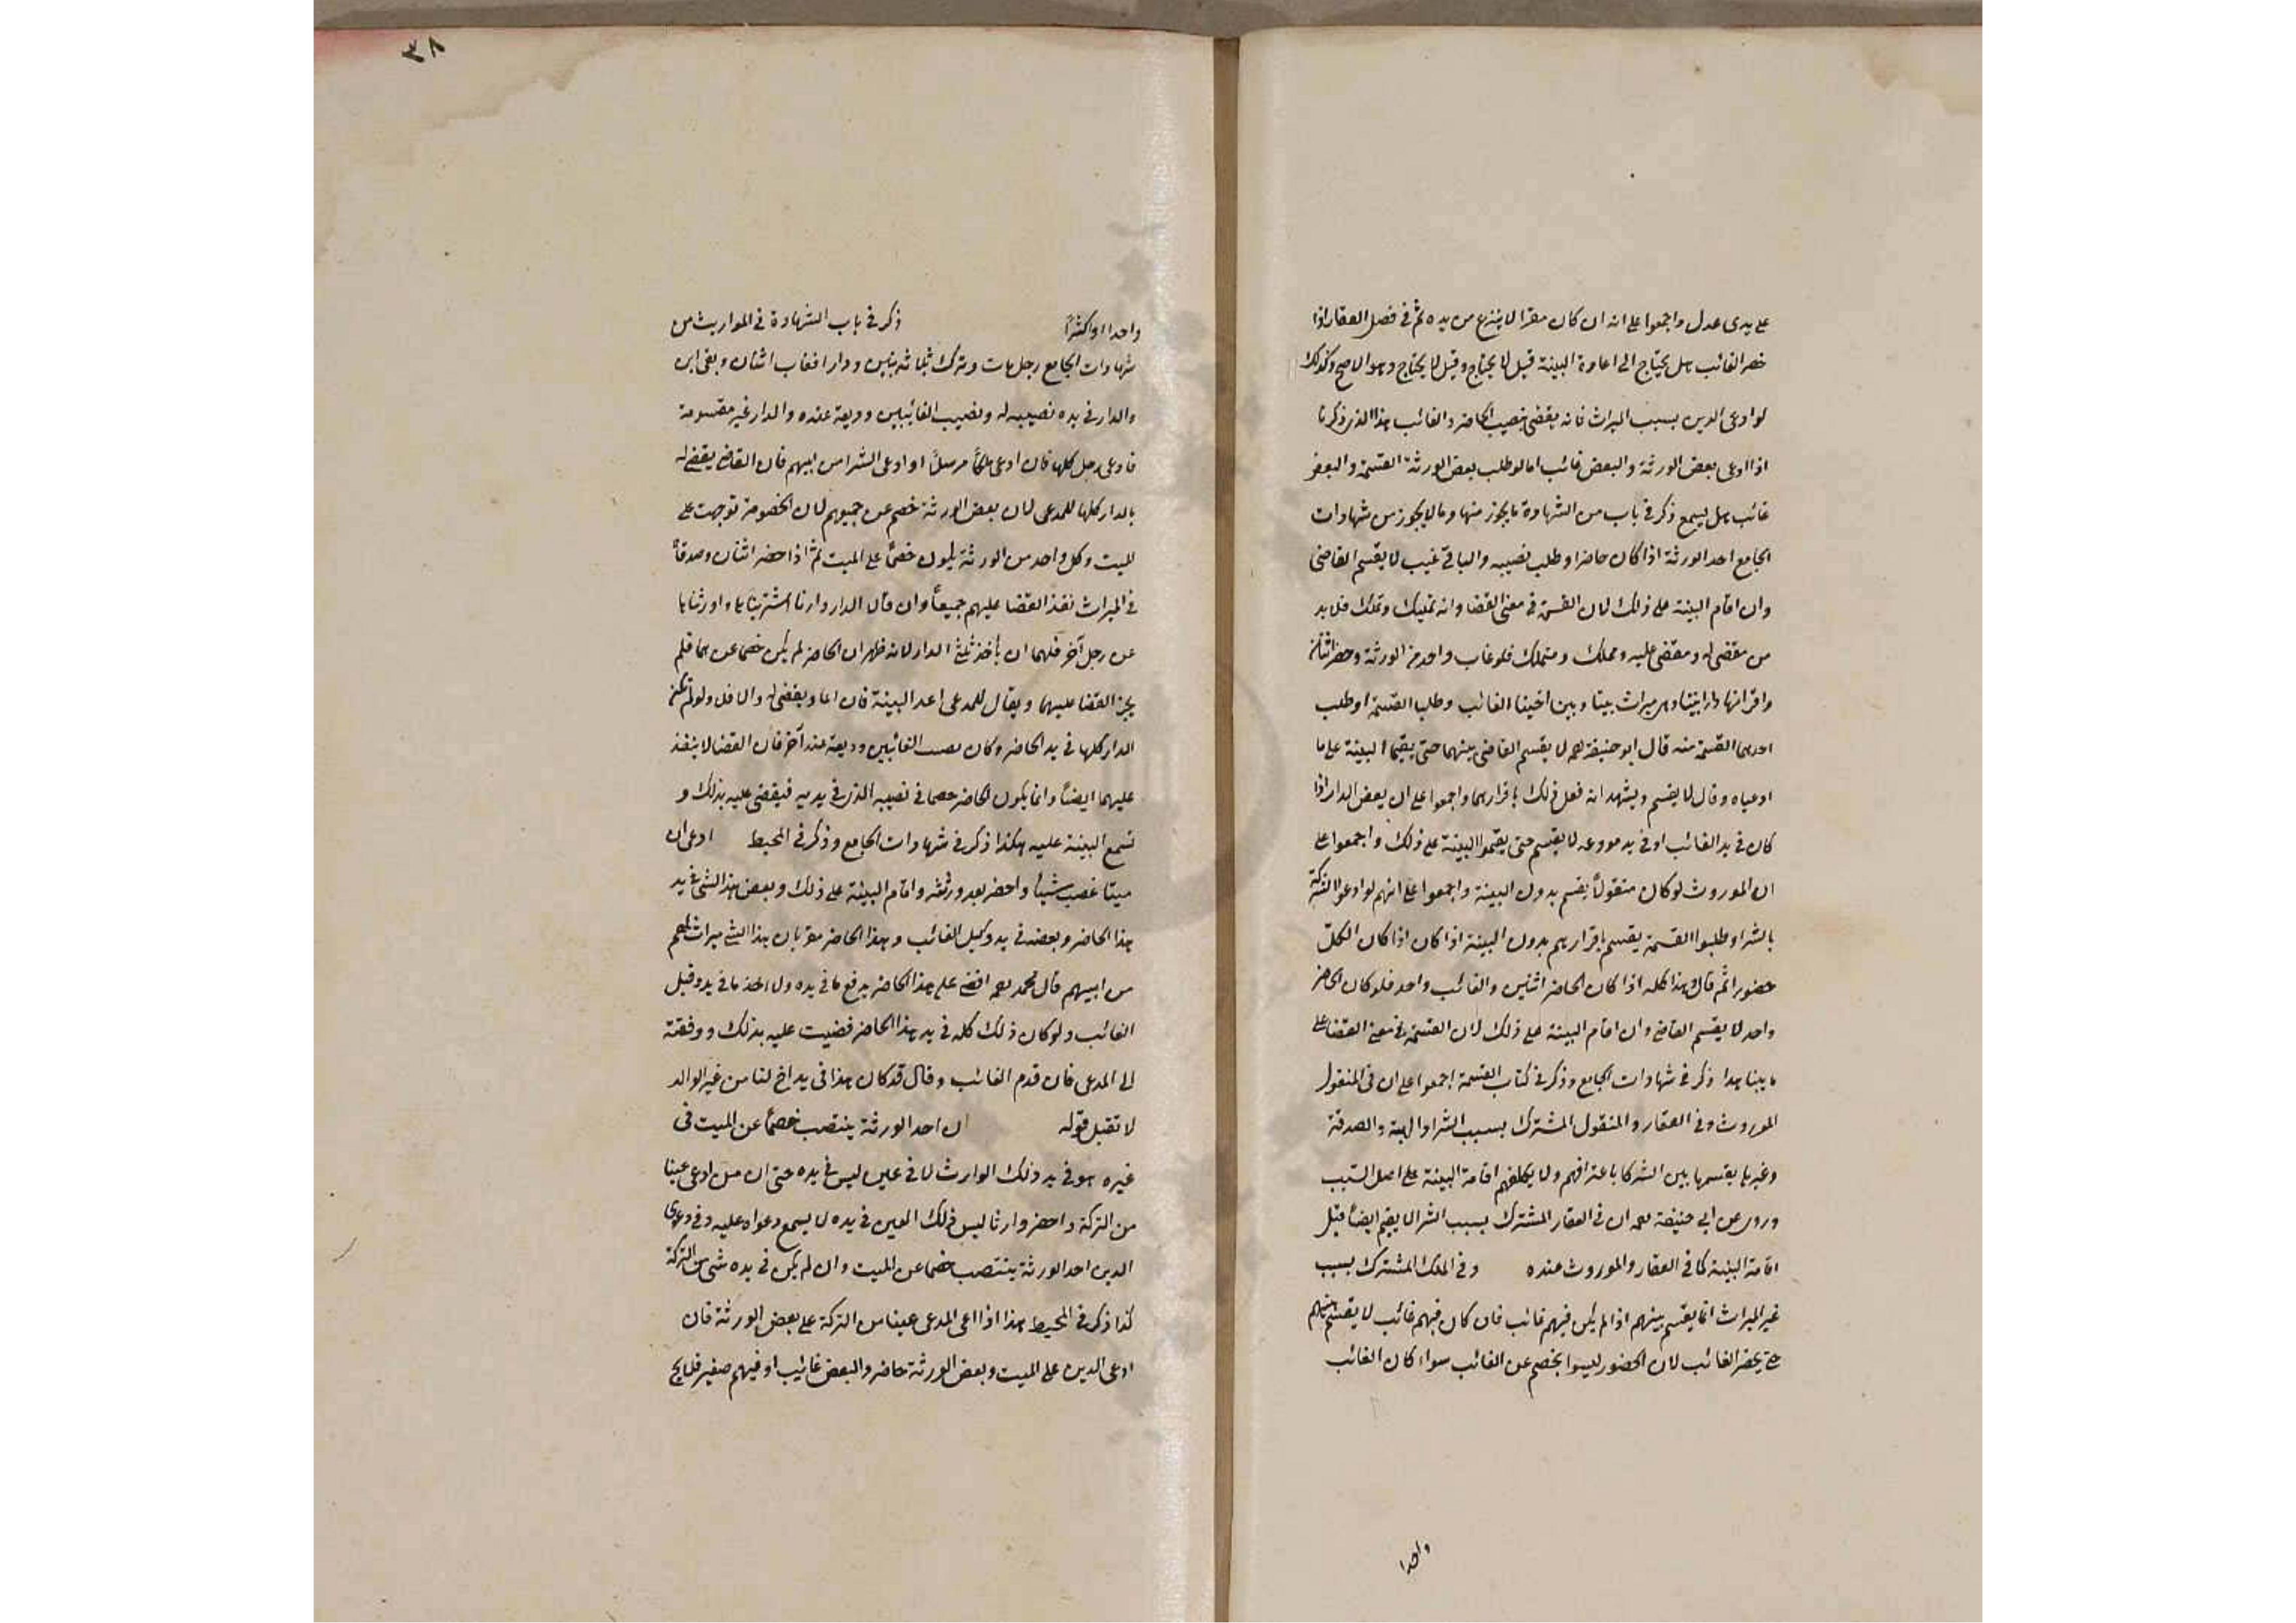 على يدى عدل واجمعوا على انه ان كان مقرا لا ينزع من يده ثم فى فصل العقار اذا
حضر الغائب هل يحتاج الى اعادة البينة قيل لا يحتاج وقيل لا يحتاج وهو الاصح وكذلك
لو ادعى الدين بسبب الميراث فانه يقضى بنصيب الحاضر والغائب هذا الذى ذكرنا
اذا ادعى بعض الورثة والبعض غائب اما لو طلب بعض الورثة القسمة والبعض
غائب هل يسمع ذكر فى باب من الشهادة ما يجوز منها وما لا يجوز من شهادات
الجامع احد الورثة اذا كان حاضرا وطلب نصيبه والباقى غيب لا يقسم القاضى
وان اقام البينة على ذلك لان القسمة فى معنى القضا وانه تمليك وتملك فلا بد
من مقضى له ومقضى عليه ومملك ومتملك فلو غاب واحد من الورثة وحضر اثنان
واقر انها دار ابينا وهى ميراث بيننا وبين اخينا الغائب وطلبا القسمة او طلب
احدهما القسمة منه قال ابو حنيفة رحمه لا يقسم القاضى بينهما حتى يقيما البينة على ما
ادعياه وقالا يقسم ويشهد انه فعل ذلك باقرارهما واجمعوا على ان بعض الدار اذا
كان فى يد الغائب او فى يد مودعه لا يقسم حتى يقيموا البينة على ذلك واجمعوا على
ان الموروث لو كان منقولاً يقسم بدون البينة واجمعوا على انهم لو ادعوا الشركة
بالشرا وطلبوا القسمة يقسم باقرارهم بدون البينة اذا كان اذا كان الكل
حضورا ثم قال وهذا كله اذا كان الحاضر اثنين والغائب واحد فلو كان الحاضر
واحد لا يقسم القاضى وان اقام البينة على ذلك لان القسمة فى معنى القضا على
ما بينا هذا ذكر فى شهادات الجامع وذكر فى كتاب القسمة اجمعوا على ان فى المنقول
الموروث وفى العقار والمنقول المشترك بسبب الشرا والهبة والصدقة
وغيرها يقسمها بين الشركا باعترافهم ولا يكلفهم اقامة البينة على اصل السبب
وروى عن ابى حنيفة رحمه ان فى العقار المشترك بسبب الشرا لا يقسم ايضاً قبل
اقامة البينة كما فى العقار والموروث عنده وفى الملك المشترك بسبب
غير الميراث انما يقسم بينهم اذا لم يكن فيهم غائب فان كان فيهم غائب لا يقسم بينهم
حتى يحضر الغائب لان الحضور ليسوا بخصم عن الغائب سواء كان الغائب
واحدا
٣٨
واحدا او اكثراً ذكر فى باب الشهادة فى المواريث من
شهادات الجامع رجل مات وترك ثلاثة بنين ودارا فغاب اثنان وبقى ابن
والدار فى يده نصيبه له ونصيب الغائبين وديعة عنده والدار غير مقسومة
فادعى رجل كلها فان ادعى ملكاً مرسلاً او ادعى الشرا من ابيهم فان القاضى يقضى له
بالدار كلها للمدعى لان بعض الورثة خصم عن جميعهم لان الخصومة توجهت على
الميت وكل واحد من الورثة يكون خصماً على الميت ثم اذا حضر اثنان وصدقاً
فى الميراث نفذ القضا عليهم جميعاً وان قالا الدار دارنا اشتريناها واورثناها
عن رجل آخر فلهما ان ياخذ ثلثى الدار لانه ظهر ان الحاضر لم يكن خصما عنهما فلم
يجز القضا عليهما ويقال للمدعى اعد البينة فان اعاد يقضى له والا فلا ولو لم تكن
الدار كلها فى يد الحاضر وكان نصيب الغائبين وديعة عند آخر فان القضا لا ينفذ
عليهما ايضاً وانما يكون الحاضر خصما فى نصيبه الذى فى يديه فيقضى عليه بذلك و
تسمع البينة عليه هكذا ذكر فى شهادات الجامع وذكر فى المحيط ادعى ان
ميتا غصب شيئا واحضر بعد ورثته واقام البينة على ذلك وبعض هذا الشئ فى يد
هذا الحاضر وبعضه فى يد وكيل الغائب وهذا الحاضر مقر بان هذا الشئ ميراث لهم
من ابيهم قال محمد رحمه اقضى على هذا الحاضر بدفع ما فى يده ولا اخذ ما فى يد وكيل
الغائب ولو كان ذلك كله فى يد هذا الحاضر قضيت عليه بذلك ودفعته
الى المدعى فان قدم الغائب وقال قد كان هذا فى يد اخ لنا من غير الوالد
لا تقبل قوله ان احد الورثة ينتصب خصماً عن الميت فى
غيره هو فى يد ذلك الوارث لا فى عين ليس فى يده حتى ان من ادعى عينا
من التركة واحضر وارثا ليس ذلك العين فى يده لا يسمع دعواه عليه وفى دعوى
الدين احد الورثة ينتصب خصما عن الميت وان لم يكن فى يده شئ من التركة
كذا ذكر فى المحيط هذا اذا ادعى المدعى عينا من التركة على بعض الورثة فان
ادعى الدين على الميت وبعض الورثة حاضر والبعض غائب او فيهم صغير فلا يخ